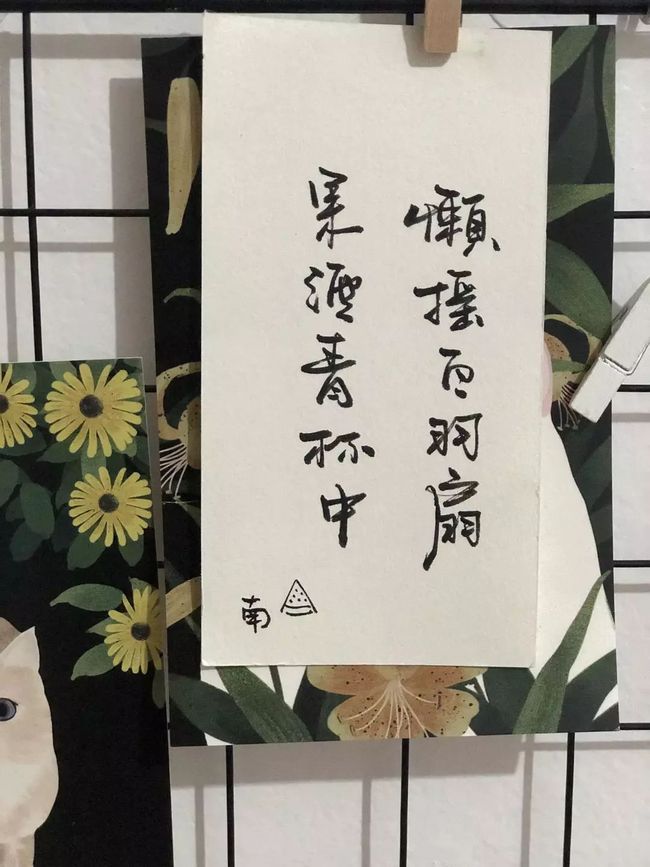 懶摇白羽扇
果酒青杯中
南